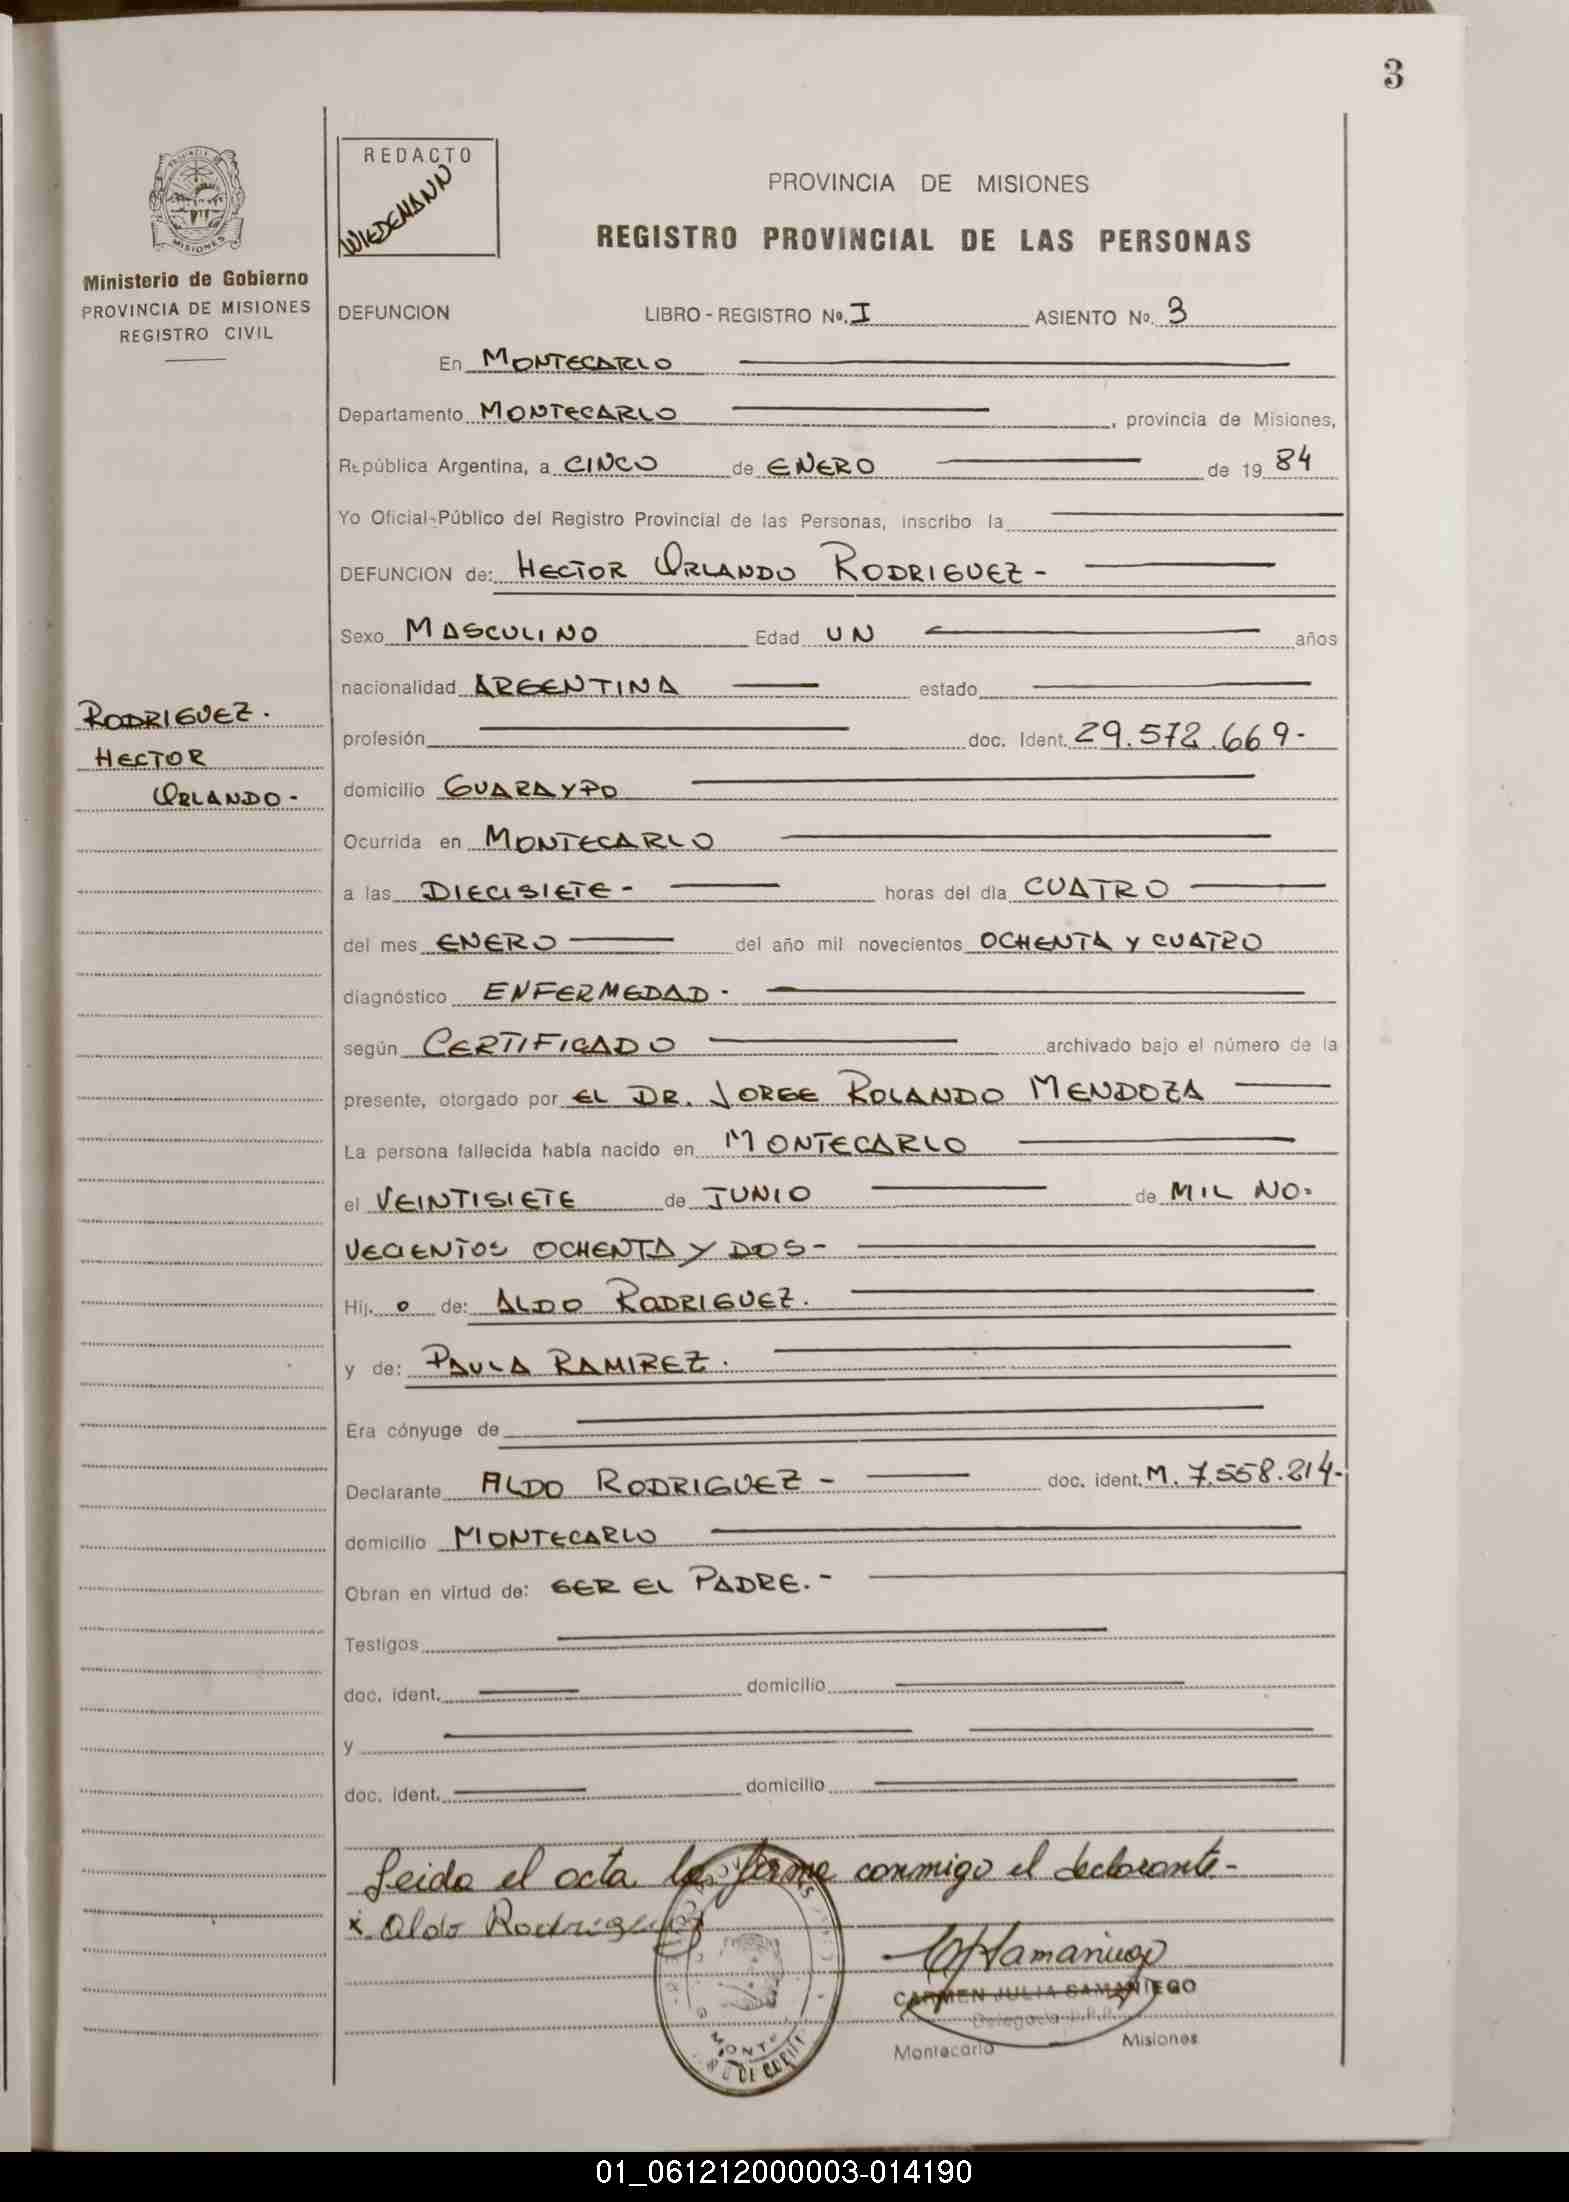 3
REDACTO
WIEDEMANN
PROVINCIA DE MISIONES
REGISTRO PROVINCIAL DE LAS PERSONAS
MISIONES
Ministerio de Gobierno
PROVINCIA DE MISIONES
REGISTRO CIVIL
DEFUNCION LIBRO - REGISTRO Nº. I ASIENTO Nº. 3
En MONTECARLO
Departamento MONTECARLO , provincia de Misiones,
República Argentina, a CINCO de ENERO de 19 84
Yo Oficial Público del Registro Provincial de las Personas, inscribo la
DEFUNCION de: HECTOR ORLANDO RODRIGUEZ -
Sexo MASCULINO Edad UN años
nacionalidad ARGENTINA estado
RODRIGUEZ.
HECTOR
ORLANDO -
profesión doc. Ident. 29.572.669-
domicilio GUARAYPO
Ocurrida en MONTECARLO
a las DIECISIETE - horas del día CUATRO
del mes ENERO del año mil novecientos OCHENTA Y CUATRO
diagnóstico ENFERMEDAD.
según CERTIFICADO archivado bajo el número de la
presente, otorgado por EL DR. JORGE ROLANDO MENDOZA
La persona fallecida había nacido en MONTECARLO
el VEINTISIETE de JUNIO de MIL NO-
VECIENTOS OCHENTA Y DOS -
Hij. o de: ALDO RODRIGUEZ.
y de: PAULA RAMIREZ.
Era cónyuge de
Declarante ALDO RODRIGUEZ - doc. ident. M. 7.558.214-
domicilio MONTECARLO
Obran en virtud de: SER EL PADRE. -
Testigos
doc. ident. domicilio
y
doc. ident. domicilio
Leida el acta la firma conmigo el declarante -
x Aldo Rodriguez
CARMEN JULIA SAMANIEGO
Delegada
Montecarlo Misiones
01_061212000003-014190